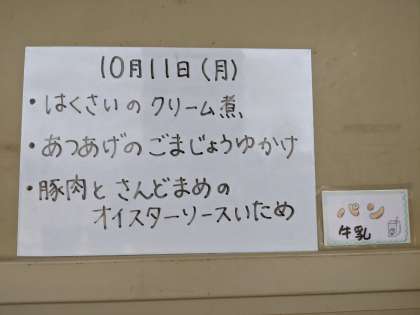 10月11日(月)
・はくさいの クリーム煮
・あつあげの ごまじょうゆかけ
・豚肉と さんどまめの
オイスターソースいため
パン
牛乳